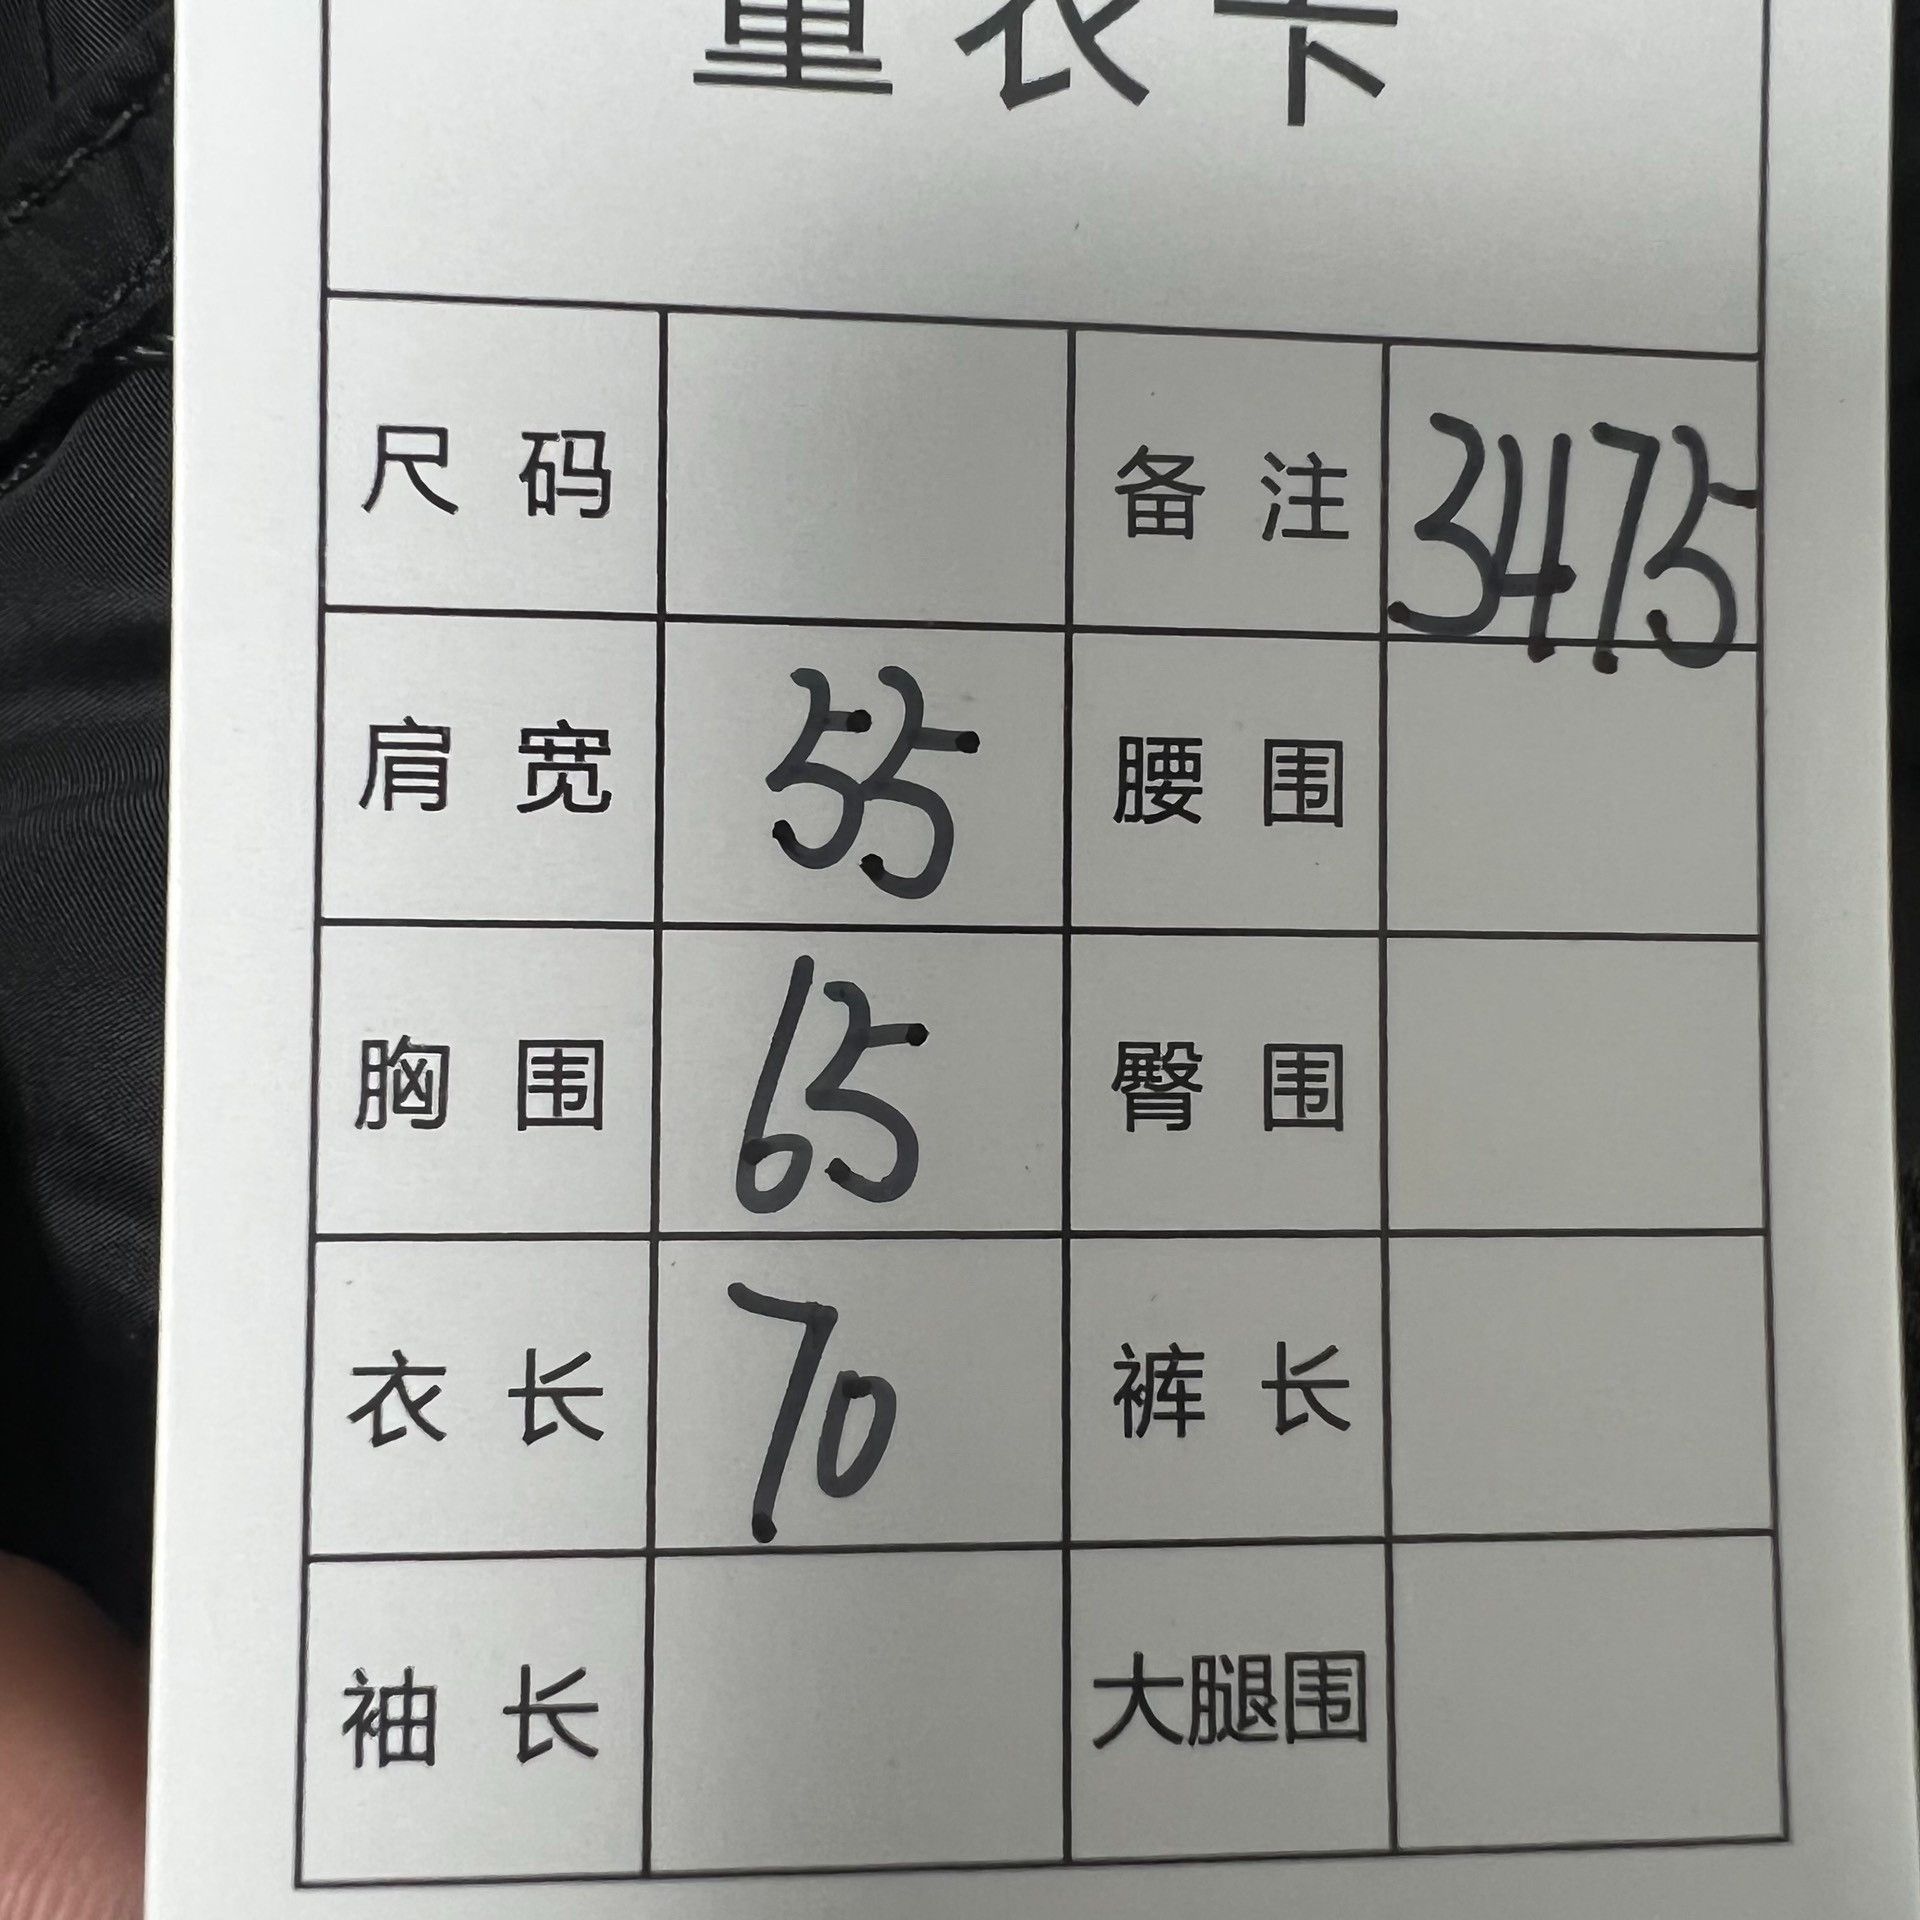 量衣卡
尺码 备注 3475
肩宽 55 腰围
胸围 65 臀围
衣长 70 裤长
袖长 大腿围